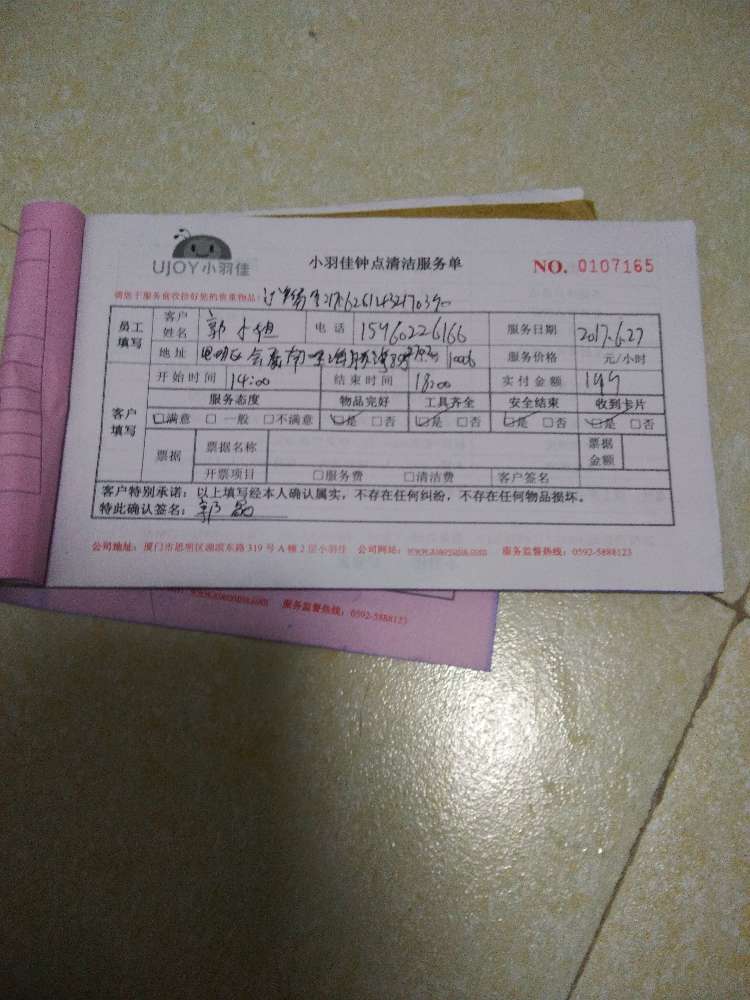 UJOY小羽佳
小羽佳钟点清洁服务单
NO. 0107165
请您于服务前收拾好您的贵重物品!
员工填写 客户姓名 郭小姐 电话 15960226166 服务日期 2017.6.27
地址 思明区会展南 1006 服务价格 元/小时
开始时间 14:00 结束时间 18:00 实付金额 149
客户填写 服务态度 物品完好 工具齐全 安全结束 收到卡片
□满意 □一般 □不满意 □是 □否 □是 □否 □是 □否 □是 □否
票据 票据名称 票据金额
开票项目 □服务费 □清洁费 客户签名
客户特别承诺:以上填写经本人确认属实,不存在任何纠纷,不存在任何物品损坏。
特此确认签名:郭
公司地址:厦门市思明区湖滨东路319号A幢2层小羽佳 公司网站:www.xiaoyujia.com 服务监督热线:0592-5888123
www.xiaoyujia.com 服务监督热线:0592-5888123